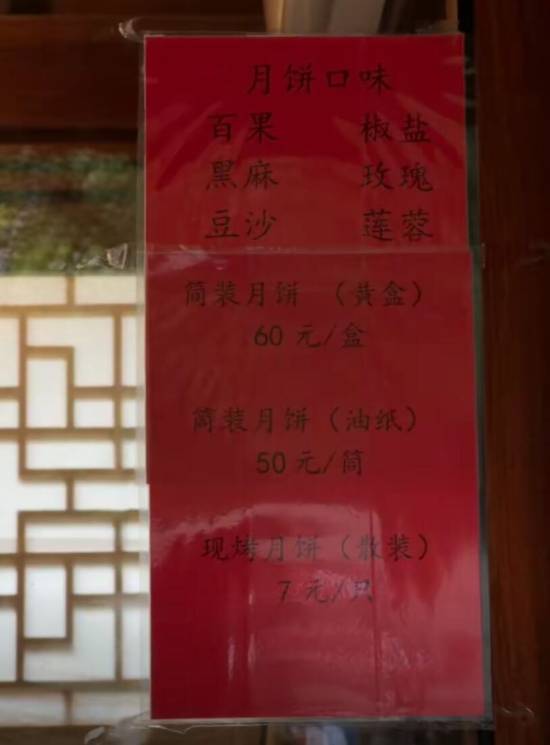 月饼口味
百果 椒盐
黑麻 玫瑰
豆沙 莲蓉
简装月饼 （黄盒）
60 元/盒
筒装月饼（油纸）
50 元/筒
现烤月饼（散装）
7 元/只